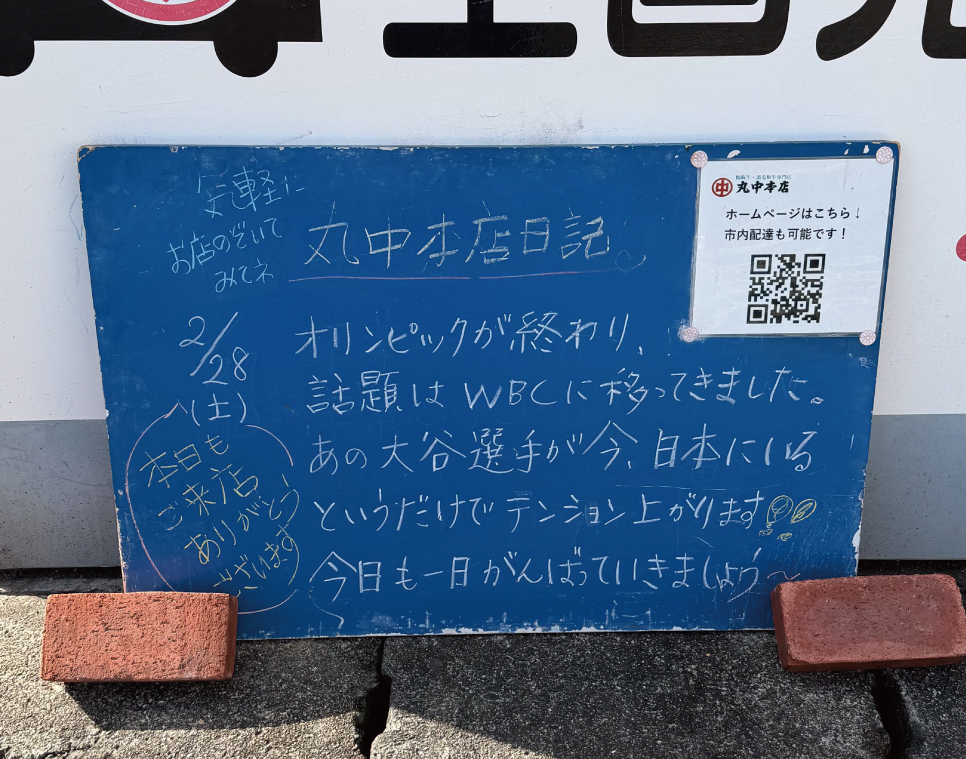 気軽に
お店のぞいて
みてネ
丸中本店日記♡
2/28
(土)
本日も
ご来店
ありがとう
ございます
オリンピックが終わり、
話題はWBCに移ってきました。
あの大谷選手が今、日本にいる
というだけでテンション上がります
今日も一日がんばっていきましょう〜
丸中本店
ホームページはこちら↓
市内配達も可能です！